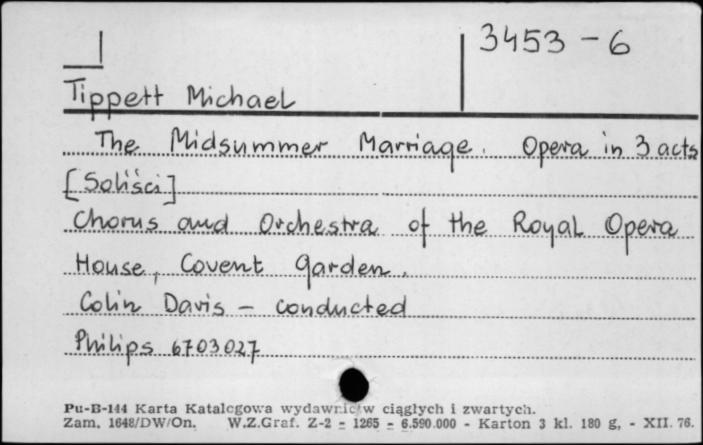 3453 - 6
Tippett Michael
The Midsummer Marriage. Opera in 3 acts
[Soliści]
Chorus and Orchestra of the Royal Opera
House, Covent Garden.
Colin Davis - conducted
Philips 6703027
Pu-B-144 Karta Katalogowa wydawnictw ciągłych i zwartych.
Zam. 1648/DW/On. W.Z.Graf. Z-2 - 1265 - 6.590.000 - Karton 3 kl. 180 g, - XII. 76.